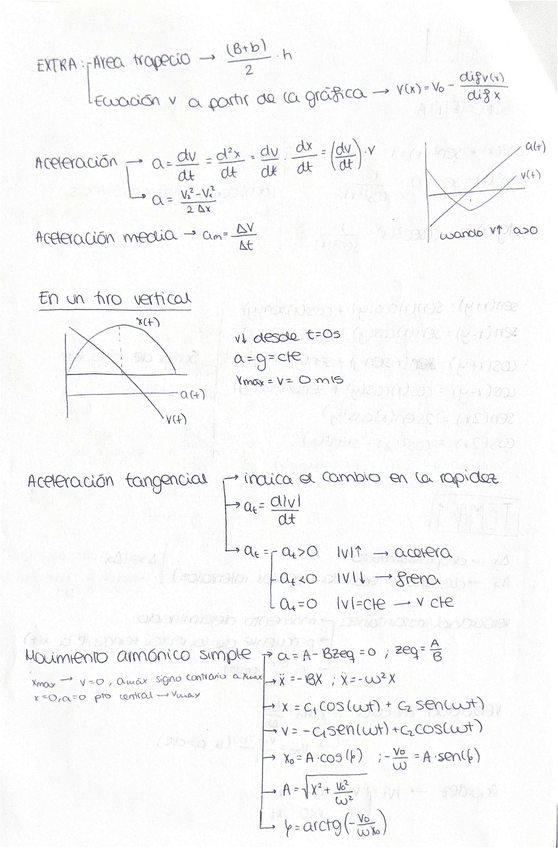 EXTRA: Area trapecio → (B+b)/2 · h
Ecuación v a partir de la gráfica → v(x) = v₀ - dif v(x)/dif x
Aceleración → a = dv/dt = d²x/dt = dv/dx · dx/dt = (dv/dt) · v
a = (v₂² - v₁²)/(2 Δx)
a(t)
v(t)
cuando v↑ a>0
Aceleración media → aₘ = ΔV/Δt
En un tiro vertical
x(t)
a(t)
v(t)
v↓ desde t=0s
a=g=cte
Xmax = v = 0 m/s
Aceleración tangencial → indica el cambio en la rapidez
→ aₜ = d|v|/dt
→ aₜ = aₜ>0 |v|↑ → acelera
aₜ<0 |v|↓ → frena
aₜ=0 |v|=cte → v cte
Movimiento armónico simple → a = A - Bzeq = 0 ; zeq = A/B
Xmax → v=0, amáx signo contrario a Xmax
x=0, a=0 pto central → vmax
→ ẍ = -BX ; ẍ = -ω²X
→ x = c₁cos(ωt) + c₂ sen(ωt)
→ v = -c₁sen(ωt) + c₂cos(ωt)
→ x₀ = A·cos(φ) ; -v₀/ω = A·sen(φ)
→ A = √(X² + v₀²/ω²)
→ φ = arctg(-v₀/ωx₀)